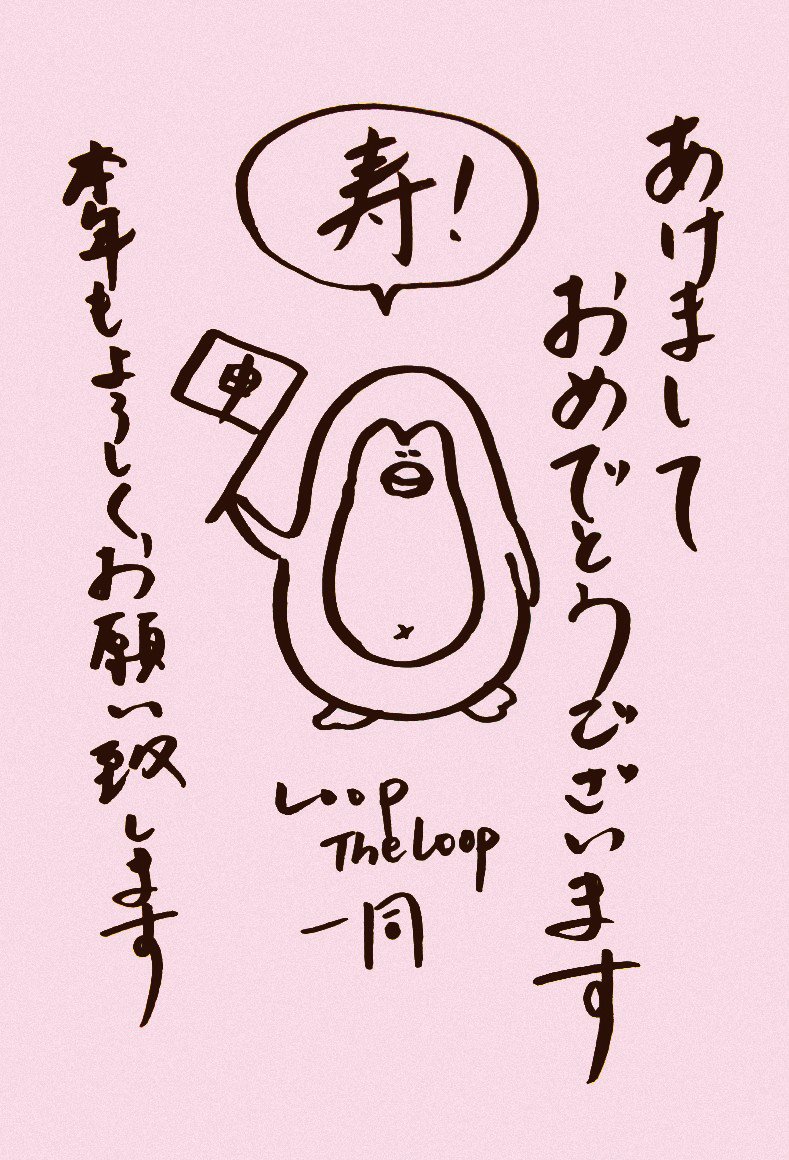 あけまして
おめでとうございます
寿!
申
Loop
The Loop
一同
本年もよろしくお願い致します